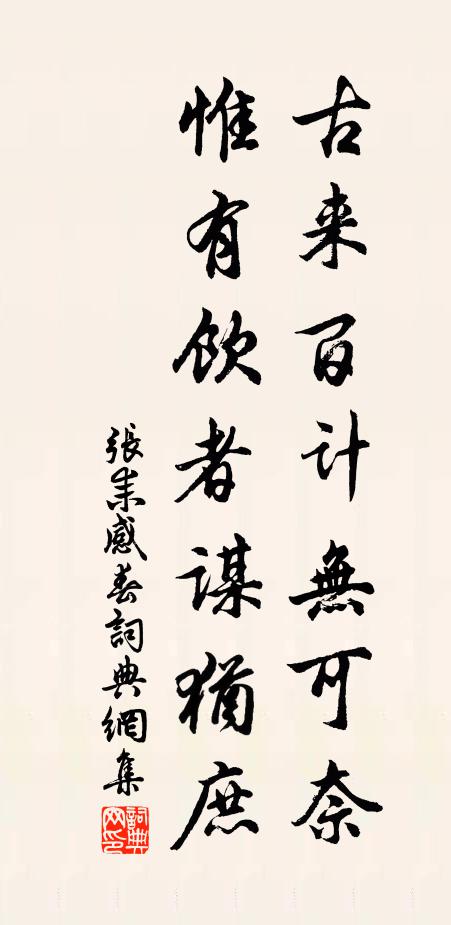 古来百计無可奈
惟有飲者謀猶庶
張耒感春詞典網集
詞典網印